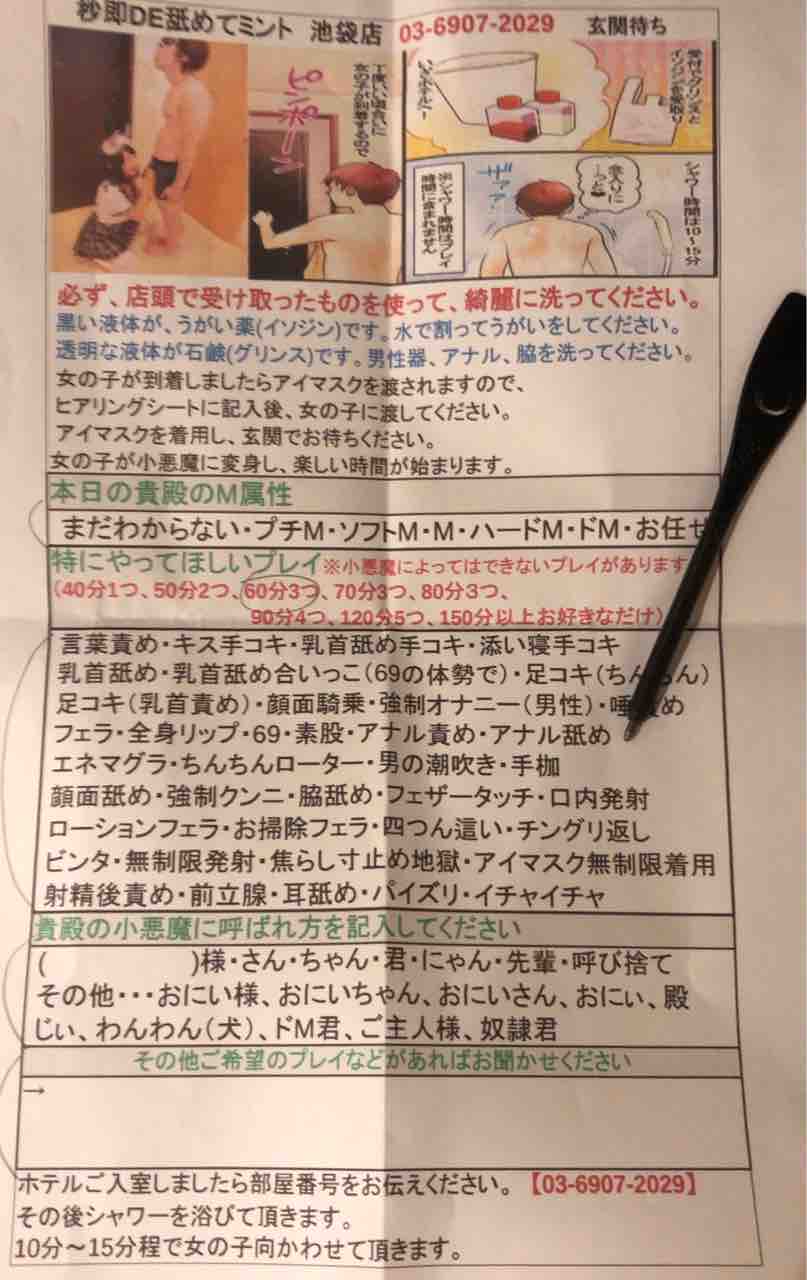 秒即DE舐めてミント 池袋店 03-6907-2029 玄関待ち
丁度いい頃合いに
女の子が到着するので
ピンポーン
受付でグリンスと
イソジンを受取り
いざホテルへ!
シャワー時間は10〜15分
念入りに
ザァァ
※シャワー時間はプレイ
時間に含まれません
必ず、店頭で受け取ったものを使って、綺麗に洗ってください。
黒い液体が、うがい薬(イソジン)です。水で割ってうがいをしてください。
透明な液体が石鹸(グリンス)です。男性器、アナル、脇を洗ってください。
女の子が到着しましたらアイマスクを渡されますので、
ヒアリングシートに記入後、女の子に渡してください。
アイマスクを着用し、玄関でお待ちください。
女の子が小悪魔に変身し、楽しい時間が始まります。
本日の貴殿のM属性
まだわからない・プチM・ソフトM・M・ハードM・ドM・お任せ
特にやってほしいプレイ※小悪魔によってはできないプレイがあります
(40分1つ、50分2つ、60分3つ、70分3つ、80分3つ、
90分4つ、120分5つ、150分以上お好きなだけ)
言葉責め・キス手コキ・乳首舐め手コキ・添い寝手コキ
乳首舐め・乳首舐め合いっこ(69の体勢で)・足コキ(ちんちん)
足コキ(乳首責め)・顔面騎乗・強制オナニー(男性)・唾責め
フェラ・全身リップ・69・素股・アナル責め・アナル舐め
エネマグラ・ちんちんローター・男の潮吹き・手枷
顔面舐め・強制クンニ・脇舐め・フェザータッチ・口内発射
ローションフェラ・お掃除フェラ・四つん這い・チングリ返し
ビンタ・無制限発射・焦らし寸止め地獄・アイマスク無制限着用
射精後責め・前立腺・耳舐め・パイズリ・イチャイチャ
貴殿の小悪魔に呼ばれ方を記入してください
(　　　　　　)様・さん・ちゃん・君・にゃん・先輩・呼び捨て
その他・・・おにい様、おにいちゃん、おにいさん、おにぃ、殿
じぃ、わんわん(犬)、ドM君、ご主人様、奴隷君
その他ご希望のプレイなどがあればお聞かせください
→
ホテルご入室しましたら部屋番号をお伝えください。【03-6907-2029】
その後シャワーを浴びて頂きます。
10分〜15分程で女の子向かわせて頂きます。